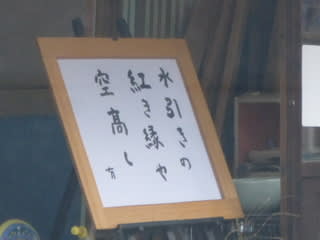 水引きの
紅き縁や
空高し